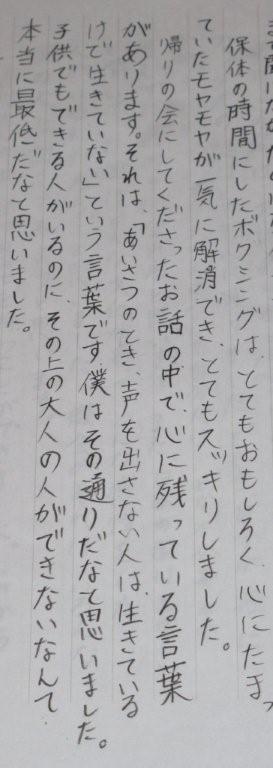 保体の時間にしたボクシングは、とてもおもしろく、心にたまっ
ていたモヤモヤが一気に解消でき、とてもスッキリしました。
帰りの会にしてくださったお話の中で、心に残っている言葉
があります。それは、「あいさつのとき、声を出さない人は、生きている
けで生きていない」という言葉です。僕はその通りだなと思いました。
子供でもできる人がいるのに、その上の大人の人ができないなんて
本当に最低だなと思いました。